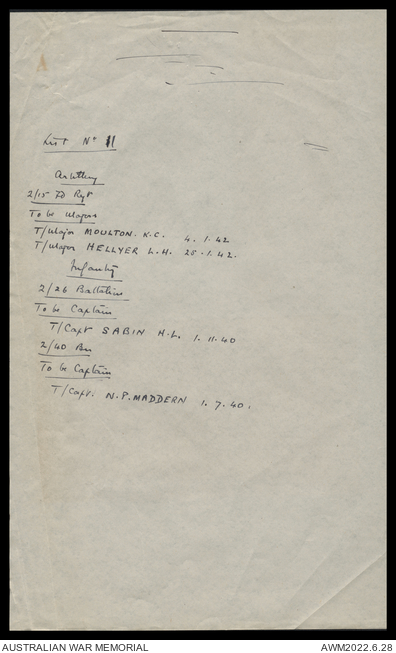 List No 11
Artillery
2/15 Fd Rgt
To be Majors
T/Major MOULTON. K.C. 4. 1. 42
T/Major HELLYER L.H. 25. 1. 42.
Infantry
2/26 Battalion
To be Captain
T/Capt SABIN H.L. 1. 11. 40
2/40 Bn
To be Captain
T/Capt. N.P. MADDERN 1. 7. 40.
AUSTRALIAN WAR MEMORIAL
AWM2022.6.28